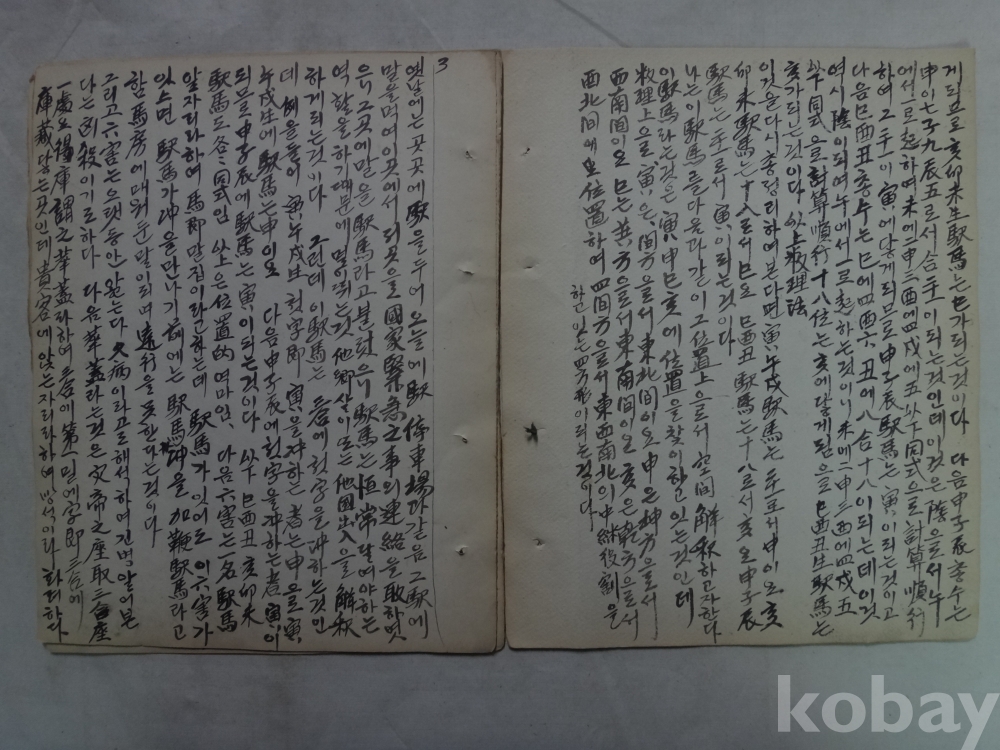 게되므로 亥卯未生驛馬는 巳가되는것이다 다음申子辰총수는
申이七子九辰五로서 合二十一이되는것인데 이것은 陰으로서 午
에서一로起하여 未에二申三酉에四戌에五 以下同式으로計算順行
하여 二十一이 寅에닿게되므로 申子辰驛馬는 寅이되는것이고
다음 巳酉丑총수는 巳에四酉六丑에八 合十八이되는데 이것
역시 陰이되여 午에서一로起하는것이니 未에二申三酉에四戌五
以下同式으로計算順行 十八位는 亥에닿게됨으로 巳酉丑生驛馬는
亥가되는것이다 以上數理法
이것을다시총정리하여본다면 寅午戌驛馬는 로서申이오 亥
卯未驛馬는 十八로서巳오 巳酉丑驛馬는十八로서亥오 申子辰
驛馬는 로서寅이되는것이다
나는이驛馬를다음과같이 그位置上으로서 空間解秋하고자한다
이驛馬라는것은 寅申巳亥에 位置을찾이하고있는것인데
数理上으로 寅은 間方을로서 東北間이오 申은 坤方으로서
西南間이오 巳는 巽方으로서 東南間이오 亥은 乾方으로서
西北間에 位置하여 四間方으로서 東西南北이中 役割을
한고있는四方形이되는것이다
3
옛날에는곳곳에驛을두어 오늘에驛 停車場과같음 그驛에
말을먹여이곳에서 되곳으로國家緊急之事의連絡을敢하엿
으니 그곳에말을驛馬라고불럿으니 驛馬는恒常달여야하는
역할을하기때문에 멀이뛰는것 他鄉살이또는他國出入을解秋
하게되는것이다 그런데이驛馬는 三合에첫字을冲하는것인
데 例을들어 寅午戌生 첫字即 寅을冲하는者는申으로 寅
午戌生에驛馬는申이오 다음申子辰에헌字을冲하는者寅이
되므로 申子辰에驛馬는 寅이되는것이다 以下 巳酉丑亥卯未
驛馬도 仝同式임 以上은位置的여마임 다음六害는一名驛馬
말자리라하며 馬即말집이라고하는데 驛馬가있어도 이六害가
있으면 驛馬가冲을만나기前에는 驛馬冲을加鞭驛馬라고
함 馬房에매워둔말이되며 遠行을못한다는것이다
그리고六害는 으랫동안알는다 久病이라고로해석하며 긴병알어본
다는 殺이기로하다 다음華盖라는것은文帝之座取三合座
處요 謂之華盖라하여 三合에第一밑에字即三合에
庫藏당는곳인데 貴客에앉는자리라하여 방석이라 화려하다
kobay